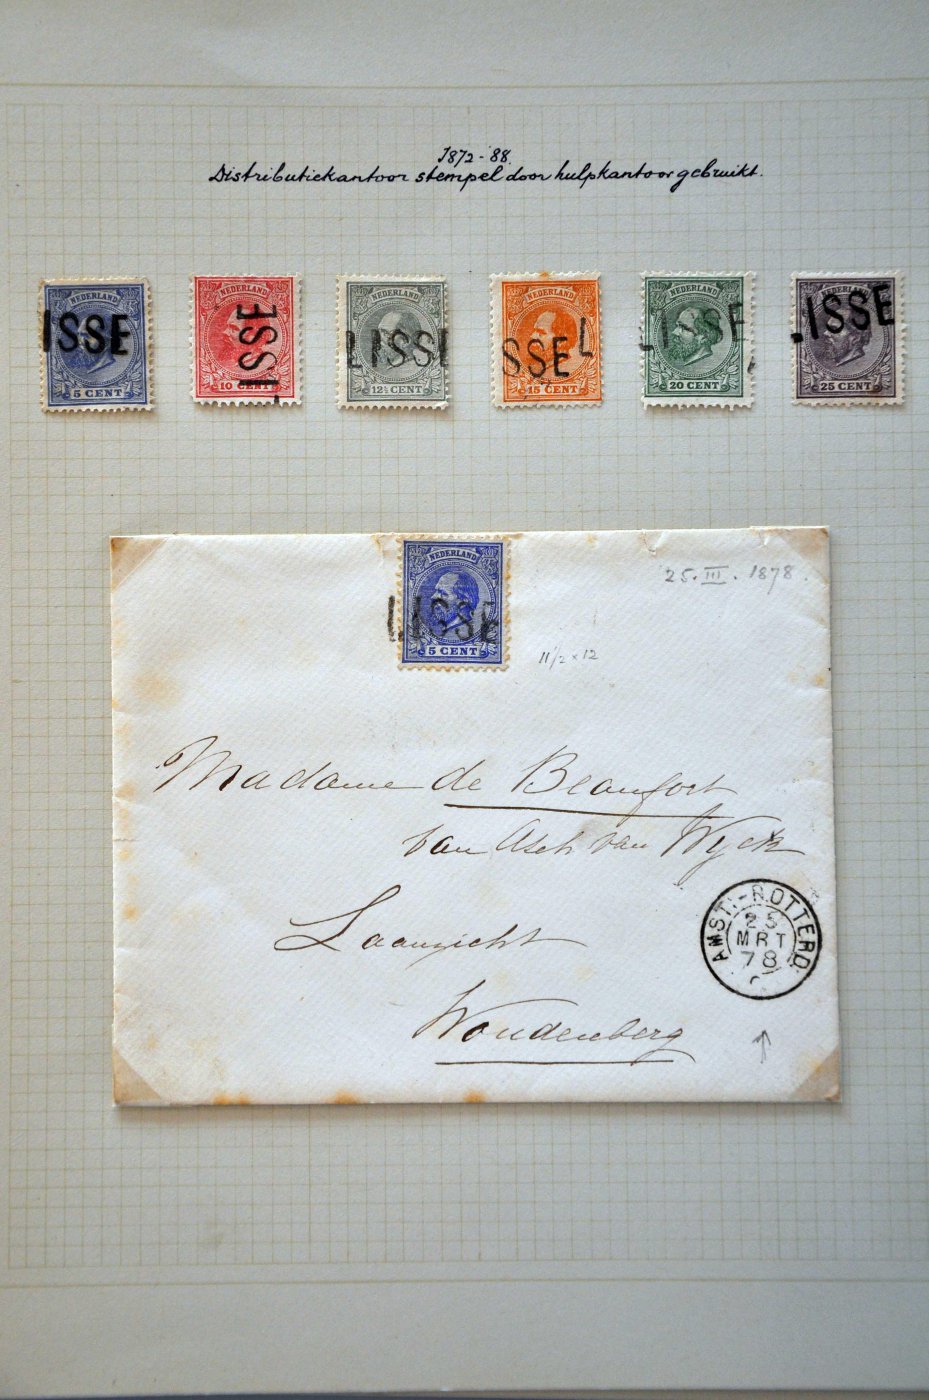 1872-88.
Distributiekantoor stempel door hulpkantoor gebruikt.
NEDERLAND
ISSE
5 CENT
NEDERLAND
LISSE
10 CENT
NEDERLAND
LISSE
12½ CENT
NEDERLAND
SSE L
15 CENT
NEDERLAND
LISSE
20 CENT
NEDERLAND
LISSE
25 CENT
NEDERLAND
LISSE
5 CENT
25.III.1878.
11½ x 12
Madame de Beaufort
van Asch van Wyck
Laanzicht
Woudenberg
AMST:-ROTTERD:
25
MRT
78